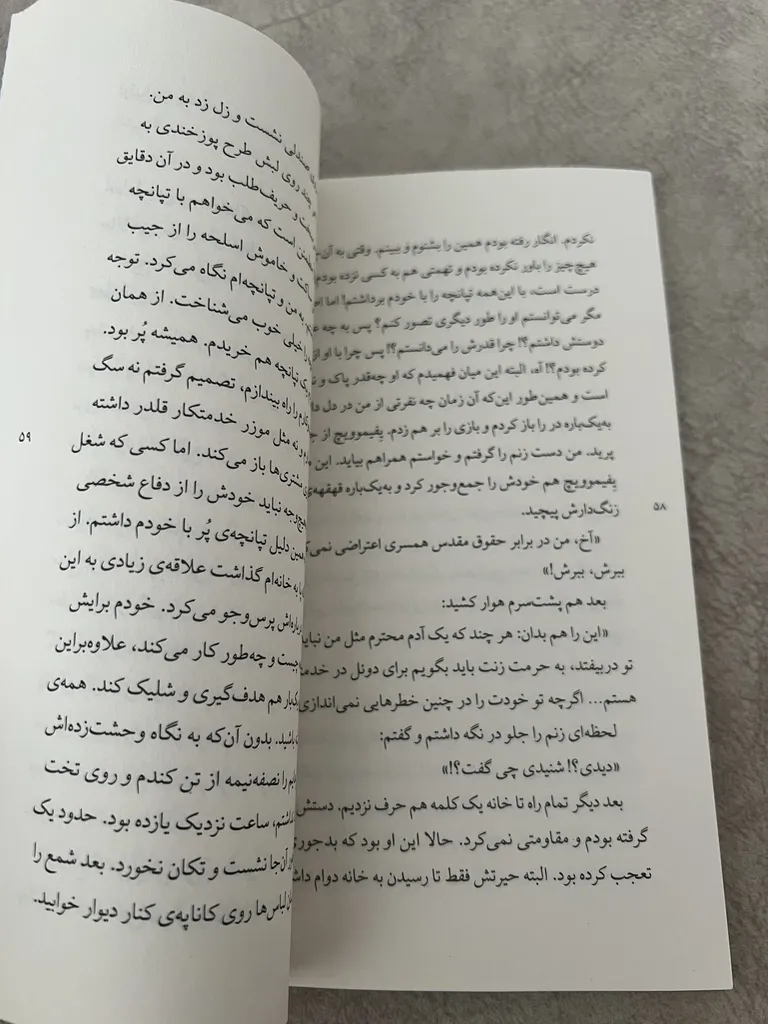 نکردم. انگار رفته بودم همین را بشنوم و ببینم. وقتی به آن
هیچ‌چیز را باور نکرده بودم و تهمتی هم به کسی نزده بودم
درست است، با این‌همه تپانچه را با خودم برداشتم! اما
مگر می‌توانستم او را طور دیگری تصور کنم؟ پس به چه
دوستش داشتم؟! چرا قدرش را می‌دانستم؟! پس چرا با او از
کرده بودم؟! آه، البته این میان فهمیدم که او چه‌قدر پاک و
است و همین‌طور این‌که آن زمان چه نفرتی از من در دل
به‌یک‌باره در را باز کردم و بازی را بر هم زدم. یِفیموویچ از
پرید. من دست زنم را گرفتم و خواستم همراهم بیاید. این
یِفیموویچ هم خودش را جمع‌وجور کرد و به‌یک‌باره قهقهه‌ی
زنگ‌دارش پیچید.
«آخ، من در برابر حقوق مقدس همسری اعتراضی
ببرش، ببرش!»
بعد هم پشت‌سرم هوار کشید:
«این را هم بدان: هر چند که یک آدم محترم مثل من نباید
تو دربیفتد، به حرمت زنت باید بگویم برای دوئل در
هستم... اگرچه تو خودت را در چنین خطرهایی نمی‌اندازی
لحظه‌ای زنم را جلو در نگه داشتم و گفتم:
«دیدی؟! شنیدی چی گفت؟!»
بعد دیگر تمام راه تا خانه یک کلمه هم حرف نزدیم. دستش
گرفته بودم و مقاومتی نمی‌کرد. حالا این او بود که بدجوری
تعجب کرده بود. البته حیرتش فقط تا رسیدن به خانه دوام
۵۸
صندلی نشست و زل زد به من.
چند روی لبش طرح پوزخندی به
و حریف‌طلب بود و در آن دقایق
است که می‌خواهم با تپانچه
و خاموش اسلحه را از جیب
به من و تپانچه‌ام نگاه می‌کرد. توجه
را خیلی خوب می‌شناخت. از همان
تپانچه هم خریدم. همیشه پُر بود.
را راه بیندازم، تصمیم گرفتم نه سگ
و نه مثل موزر خدمتکار قلدر داشته
مشتری‌ها باز می‌کند. اما کسی که شغل
نباید خودش را از دفاع شخصی
همین دلیل تپانچه‌ی پُر با خودم داشتم. از
به خانه‌ام گذاشت علاقه‌ی زیادی به این
پرس‌وجو می‌کرد. خودم برایش
چیست و چه‌طور کار می‌کند، علاوه‌براین
هم هدف‌گیری و شلیک کند. همه‌ی
باشید. بدون آن‌که به نگاه وحشت‌زده‌اش
را نصفه‌نیمه از تن کندم و روی تخت
ساعت نزدیک یازده بود. حدود یک
آن‌جا نشست و تکان نخورد. بعد شمع را
لباس‌ها روی کاناپه‌ی کنار دیوار خوابید.
۵۹